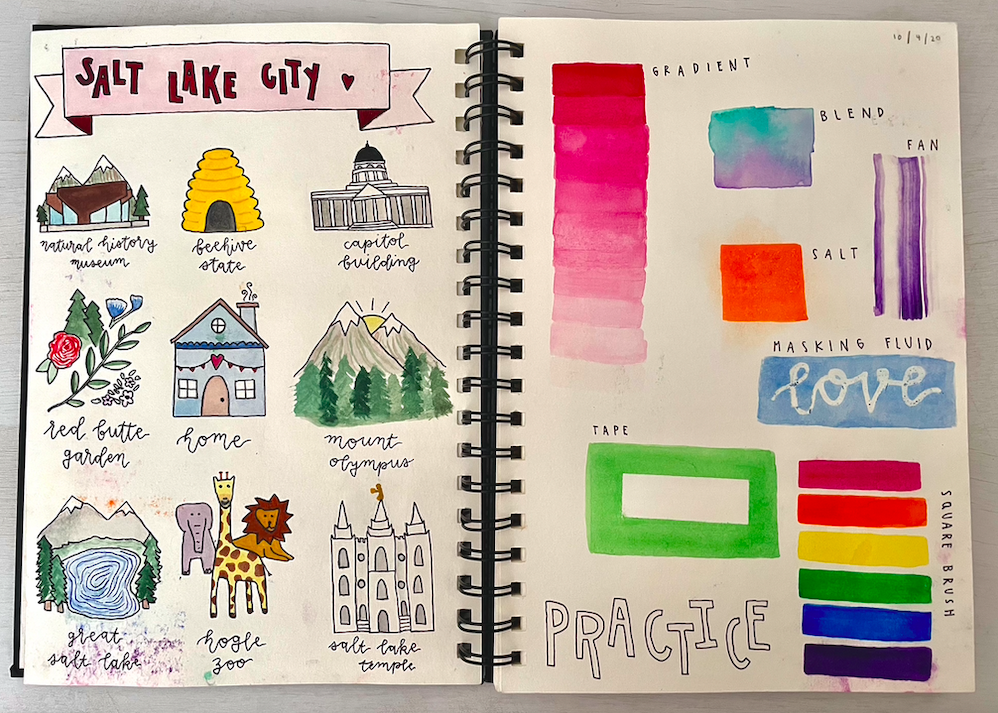 SALT LAKE CITY
natural history
museum
beehive
state
capitol
building
red butte
garden
home
mount
olympus
great
salt lake
hogle
zoo
salt lake
temple
10/4/20
GRADIENT
BLEND
FAN
SALT
MASKING FLUID
love
TAPE
SQUARE BRUSH
PRACTICE